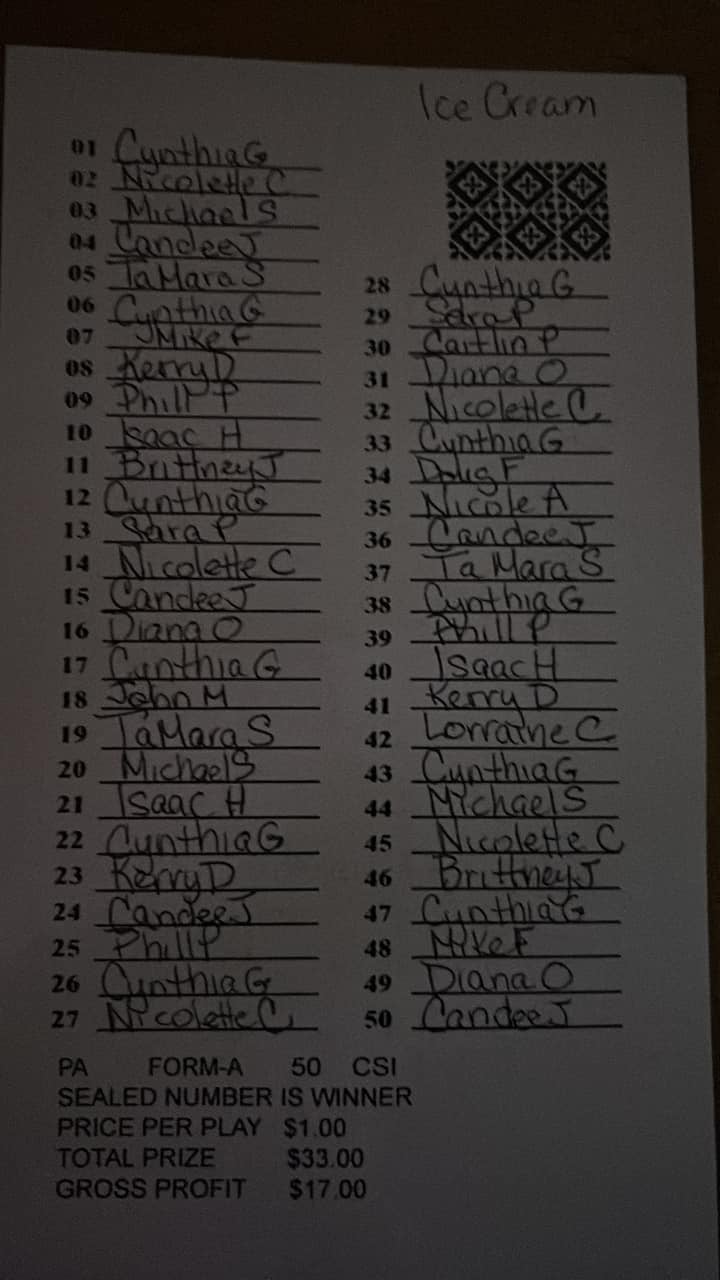 Ice Cream
01 Cynthia G
02 Nicolette C
03 Michael S
04 Candee J
05 TaMara S
06 Cynthia G
07 JMike F
08 Kerry D
09 Phill P
10 Isaac H
11 Brittney J
12 Cynthia G
13 Sara P
14 Nicolette C
15 Candee J
16 Diana O
17 Cynthia G
18 John M
19 TaMara S
20 Michael S
21 Isaac H
22 Cynthia G
23 Kerry D
24 Candee J
25 Phill P
26 Cynthia G
27 Nicolette C
28 Cynthia G
29 Sara P
30 Caitlin P
31 Diana O
32 Nicolette C
33 Cynthia G
34 Doug F
35 Nicole A
36 Candee J
37 Ta Mara S
38 Cynthia G
39 Phill P
40 Isaac H
41 Kerry D
42 Lorraine C
43 Cynthia G
44 Michael S
45 Nicolette C
46 Brittney J
47 Cynthia G
48 Mike F
49 Diana O
50 Candee J
PA FORM-A 50 CSI
SEALED NUMBER IS WINNER
PRICE PER PLAY $1.00
TOTAL PRIZE $33.00
GROSS PROFIT $17.00